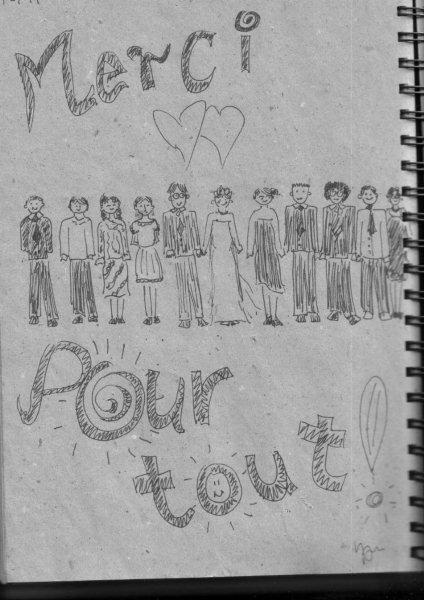 Merci
Pour
tout!